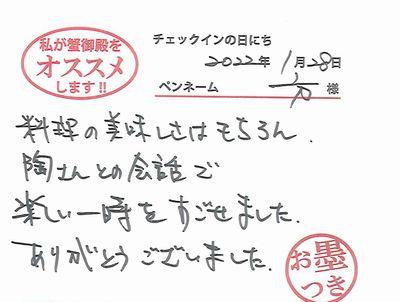 私が蟹御殿を
オススメ
します!!
チェックインの日にち
2022年 1月28日
ペンネーム 様
料理の美味しさはもちろん、
陶さんとの会話で
楽しい一時をすごせました。
ありがとうございました。
お墨
つき